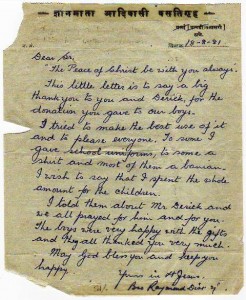 ज्ञानमाता आदिवासी वसतिगृह
दिनांक 18-8-81
Dear Sr,
The Peace of Christ be with you always.
This little letter is to say a big
thank you to you and Derick, for the
donation you gave to our boys.
I tried to make the best use of it
and to please everyone. To some I
gave school uniforms, to some a
shirt and most of them a banian.
I wish to say that I spent the whole
amount for the children.
I told them about Mr Derick and
we all prayed for him and for you.
The boys were very happy with the gifts
and they all thanked you very much.
May God bless you and keep you
happy.
Yours in H. Jesus.
Bro Raymond Dias